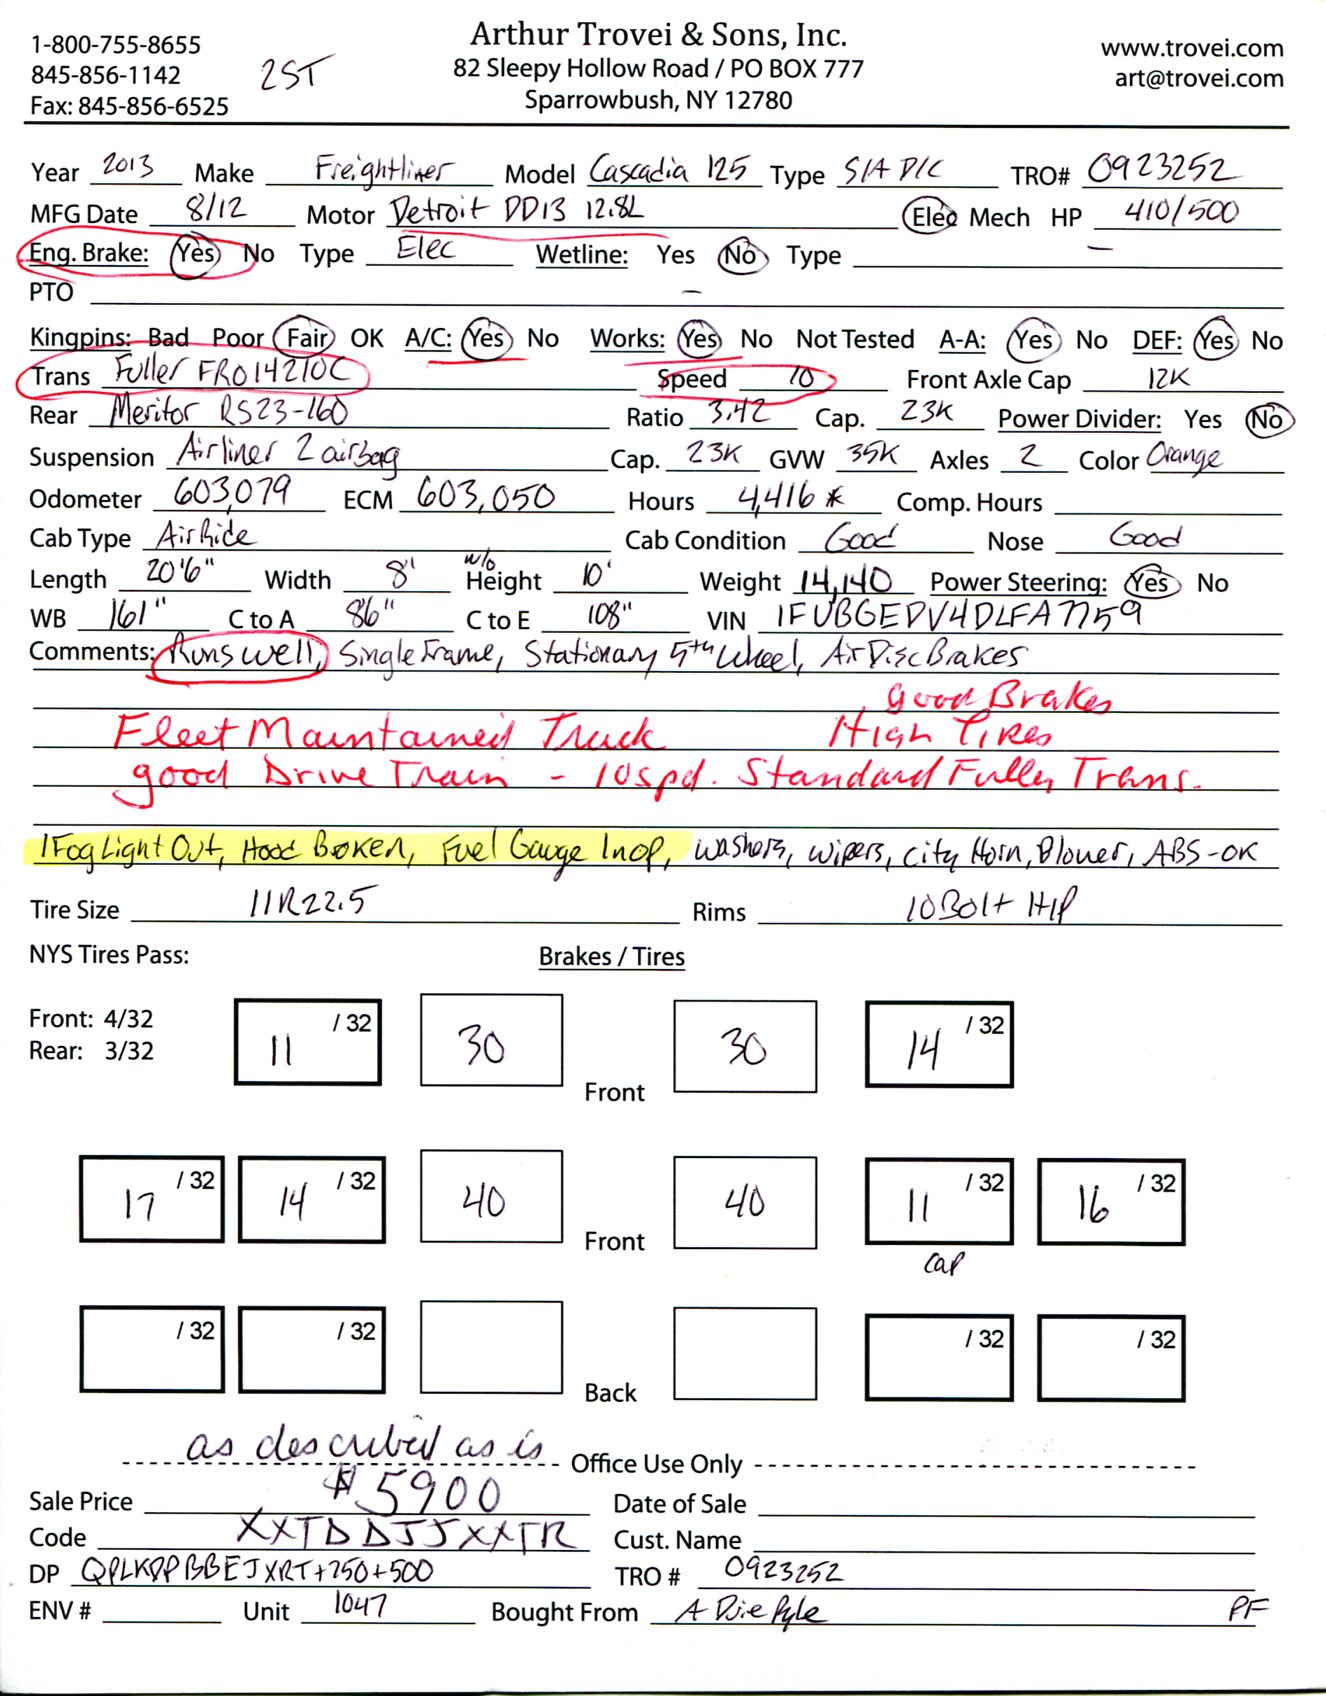 Arthur Trovei & Sons, Inc.
1-800-755-8655 82 Sleepy Hollow Road / PO BOX 777 www.trovei.com
845-856-1142 2ST Sparrowbush, NY 12780 art@trovei.com
Fax: 845-856-6525
Year 2013 Make Freightliner Model Cascadia 125 Type S/A D/C TRO# 0923252
MFG Date 8/12 Motor Detroit DD13 12.8L Elec Mech HP 410/500
Eng. Brake: Yes No Type Elec Wetline: Yes No Type —
PTO —
Kingpins: Bad Poor Fair OK A/C: Yes No Works: Yes No Not Tested A-A: Yes No DEF: Yes No
Trans Fuller FRO14210C Speed 10 Front Axle Cap 12K
Rear Meritor RS23-160 Ratio 3.42 Cap. 23K Power Divider: Yes No
Suspension Airliner 2 airbag Cap. 23K GVW 35K Axles 2 Color Orange
Odometer 603,079 ECM 603,050 Hours 4,416 * Comp. Hours
Cab Type Air Ride Cab Condition Good Nose Good
Length 20'6" Width 8' w/o Height 10' Weight 14,140 Power Steering: Yes No
WB 161" C to A 86" C to E 108" VIN 1FUBGEDV4DLFA7759
Comments: Runs well, Single Frame, Stationary 5th Wheel, Air Disc Brakes
good Brakes
Fleet Maintained Truck High Tires
good Drive Train - 10spd. Standard Fully Trans.
1 Fog Light Out, Hood Broken, Fuel Gauge Inop, Washers, Wipers, City Horn, Blower, ABS-OK
Tire Size 11R22.5 Rims 10 Bolt H/P
NYS Tires Pass: Brakes / Tires
Front: 4/32 11 /32 30 30 14 /32
Rear: 3/32
Front
17 /32 14 /32 40 40 11 /32 16 /32
Front
cap
/32 /32 /32 /32
Back
as described as is Office Use Only
Sale Price $5900 Date of Sale
Code XXTDDJJXXTR Cust. Name
DP QPLKPPBBEJXRT+250+500 TRO # 0923252
ENV # Unit 1047 Bought From A Duie Pyle PF